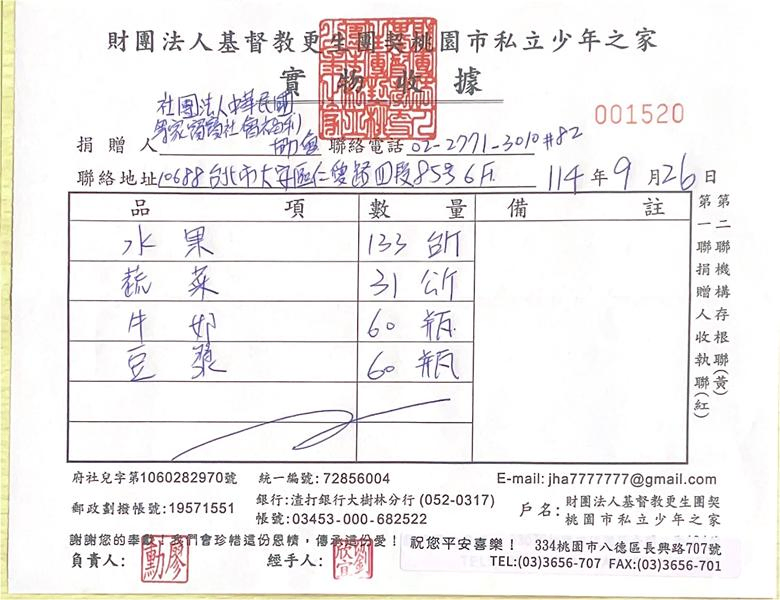 財團法人基督教更生團契桃園市私立少年之家
實物收據
001520
社團法人中華民國
社會福利
協會
捐贈人 聯絡電話 02-2771-3010#82
聯絡地址 10688台北市大安區仁愛路四段85號6F. 114年9月26日
品項 數量 備註
水果 133 台斤
蔬菜 31 公斤
牛奶 60 瓶
豆漿 60 瓶
第一聯捐贈人收執聯(紅)
第二聯機構存根聯(黃)
府社兒字第1060282970號 統一編號:72856004 E-mail: jha7777777@gmail.com
郵政劃撥帳號:19571551 銀行:渣打銀行大樹林分行 (052-0317)
帳號:03453-000-682522
戶名: 財團法人基督教更生團契
桃園市私立少年之家
謝謝您的奉獻!我們會珍惜這份恩情,傳承這份愛!
祝您平安喜樂! 334桃園市八德區長興路707號
TEL:(03)3656-707 FAX:(03)3656-701
負責人: 廖勳 經手人: 劉欣宜